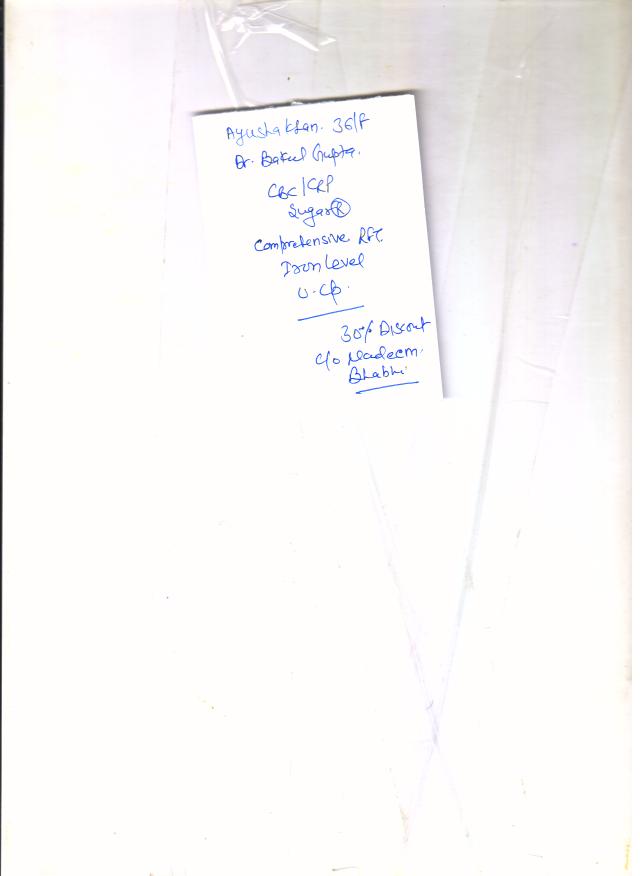 Ayusha Khan. 36/F
Dr. Bakul Gupta.
CBC/CRP
Sugar Ⓡ
Comprehensive RFT.
Iron Level
U-Cp.
30% Discout
C/o Nadeem.
Bhabhi